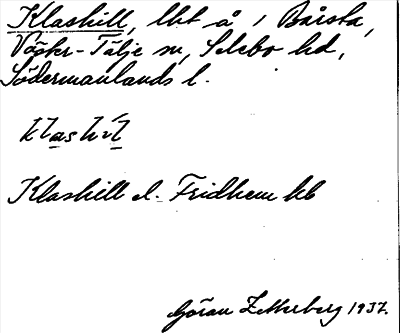 Klashill, lht å, Bårsta,
Väster-Tälje sn, Selebo hd,
Södermanlands l.
klashil
Klashill el. Fridhem kb
Göran Zetterberg 1937.